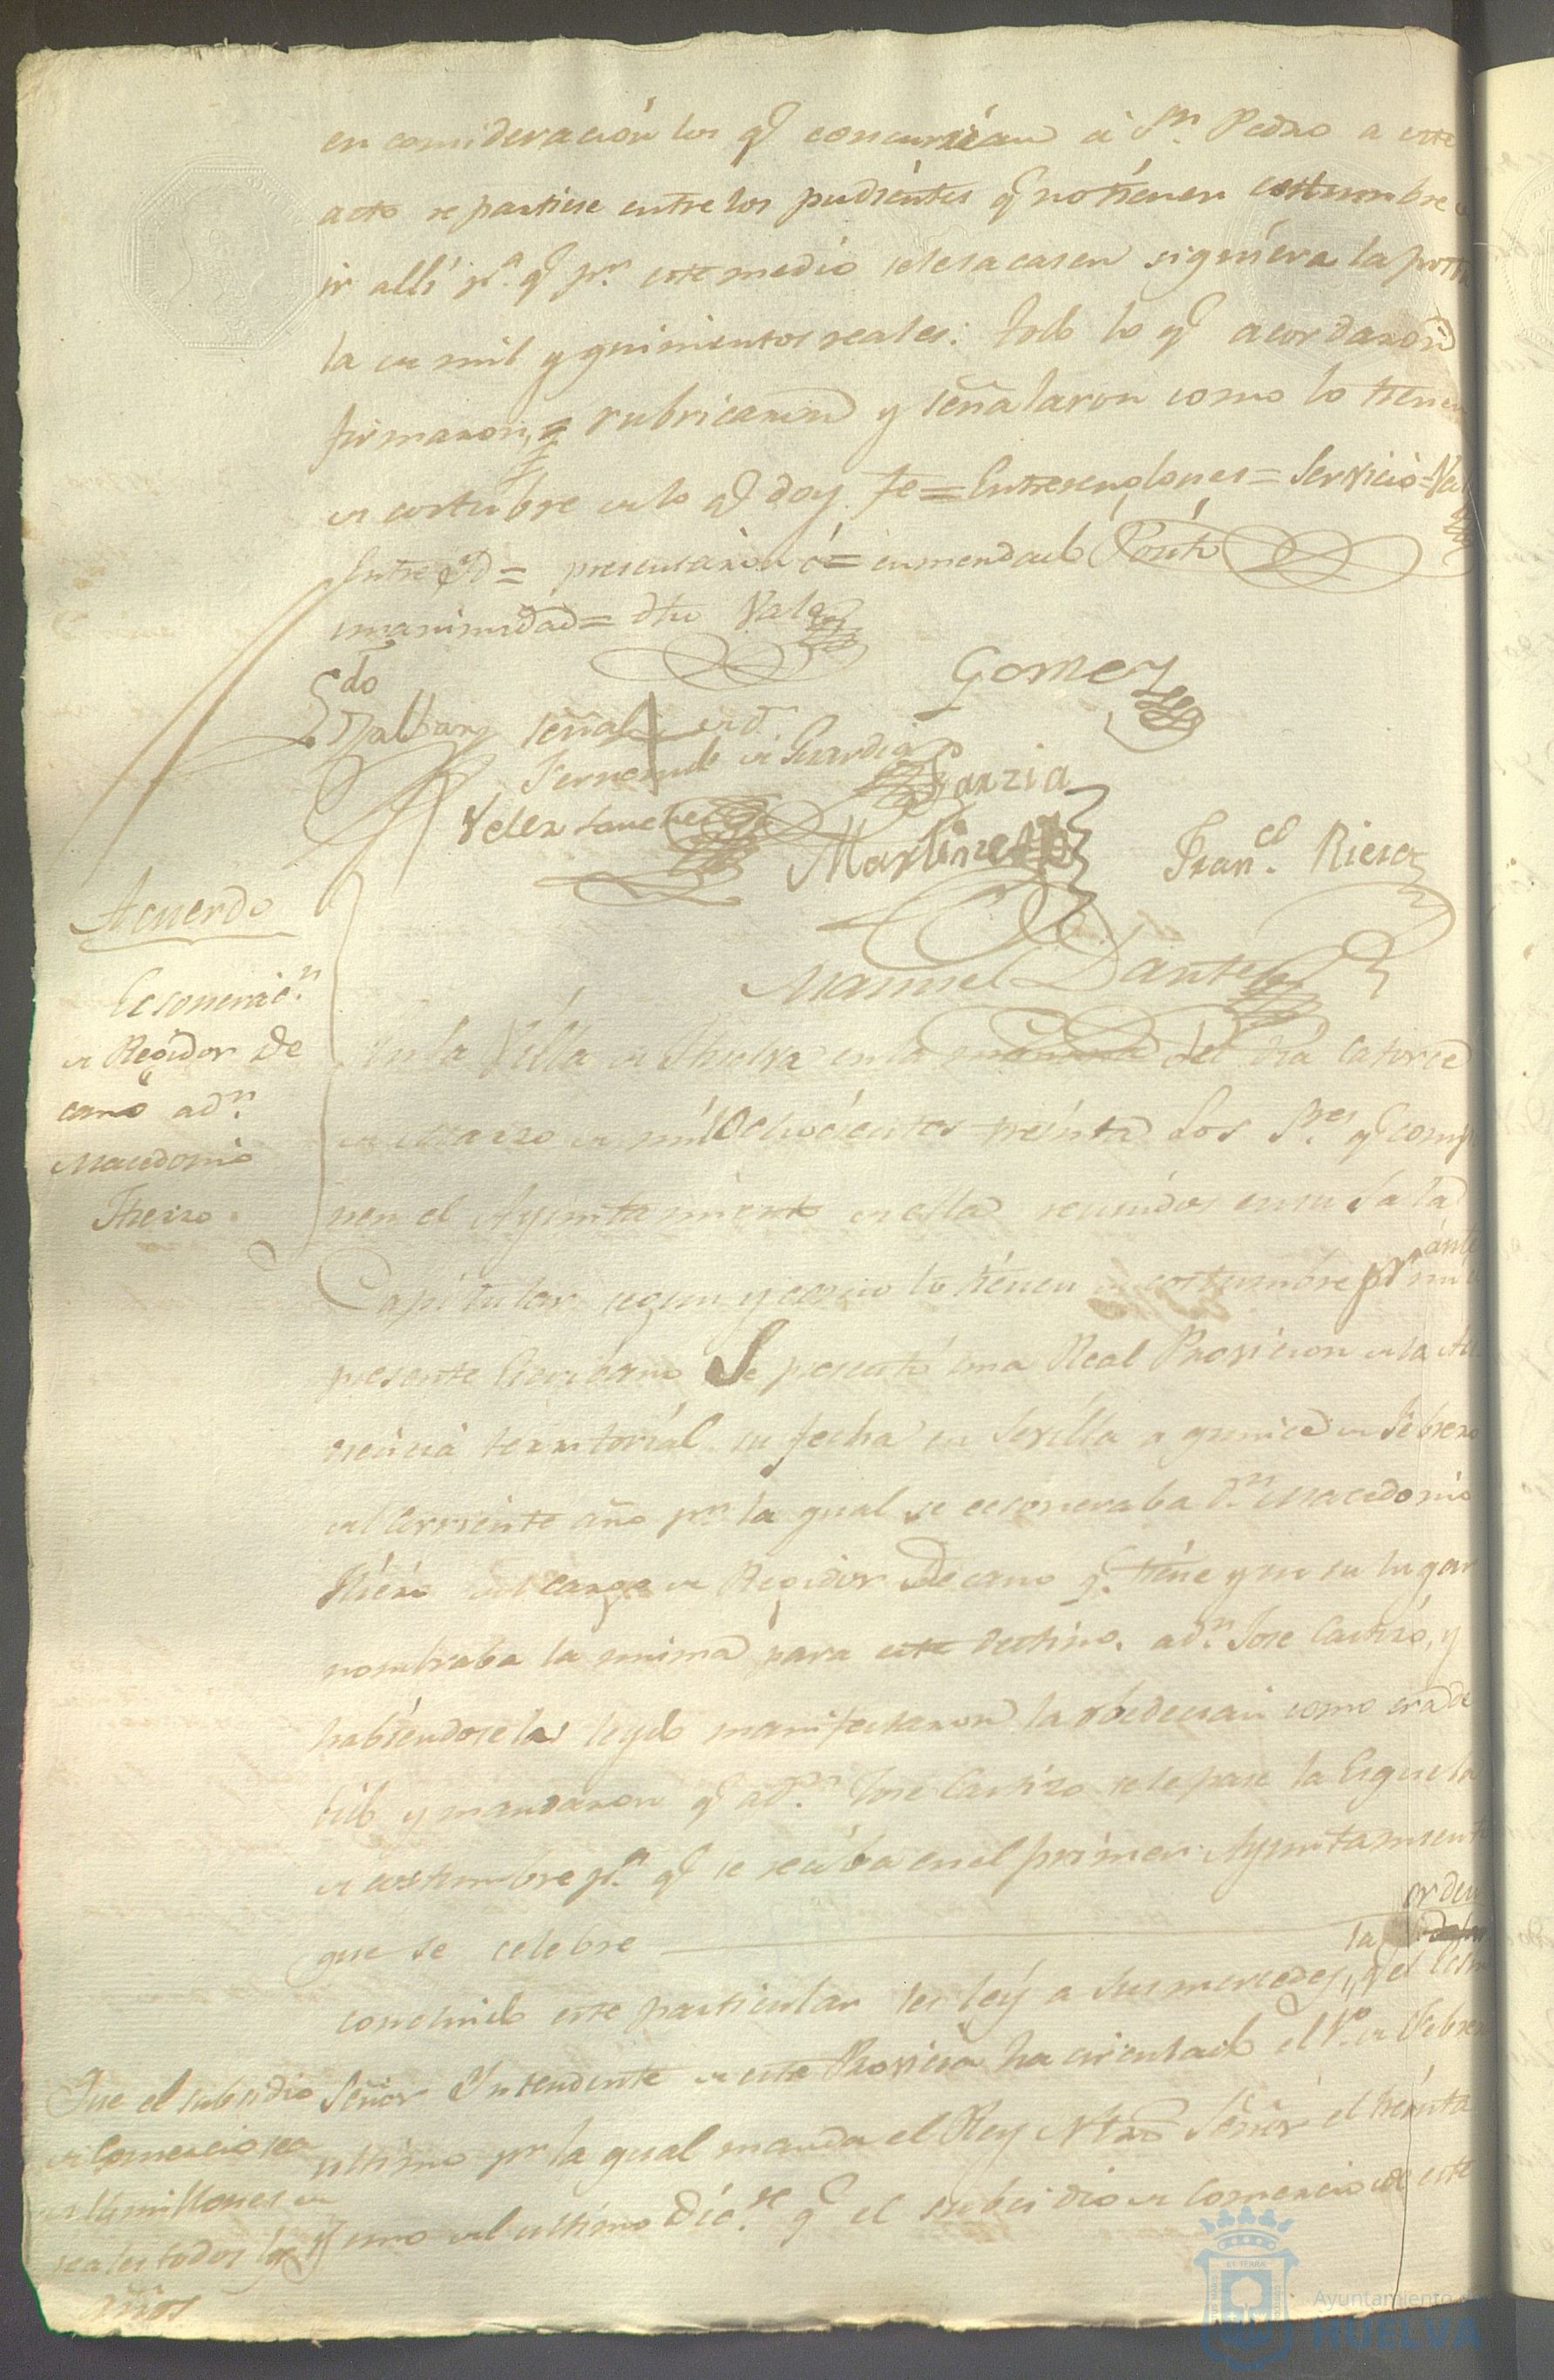 en consideración los q.e concurrían á S.n Pedro a este
acto repartiese entre los pudientes q.e no tienen costumbre
ir allí p.a q.e p.r este medio se les sacasen siquiera la
la de mil y quinientos reales: todo lo q.e acordaron
firmaron, rubricaron y señalaron como lo tienen
de costumbre de lo q.e doy fe = Entrerenglones = Servicio =
Entre = presentaron ó = enmendado
unanimidad = dho Vale
Gomez
Señal de d.n
Fernando de Guardia
Garzia
Velez Sanchez
Martinez
Fran.co Riera
Manuel Dantes
Acuerdo
Ecsonerac.n
de Regidor De
cano a d.n
Macedonio
Therro.
En la Villa de Huelva en la mañana del dia catorce
de Marzo de mil Ochocientos treinta Los S.res q.e comp
nen el Ayuntamiento de ella reunidos en su Sala
ante
Capitular segun y como lo tienen de costumbre p.r mi
presente Escribano Se presentó una Real Provision de la Au
diencia territorial su fecha en Sevilla a quince de Febrero
del corriente año p.r la qual se ecsoneraba d.n Macedonio
del cargo de Regidor Decano q.e tiene y en su lugar
nombraba la misma para este destino. a d.n Jose Castizo, y
habiendosela leydo manifestaron la obedecian como era de
bido y mandaron q.e a d.n Jose Castizo se le pase la Esquela
de costumbre p.a q.e se reciba en el primer Ayuntamient
que se celebre
orden
la
concluido este particular les ley a sus mercedes, q.e el
Señor Yntendente de esta Provicia ha circulado el 1.o de Febre
ultimo p.r la qual manda el Rey Ntro Señor el treinta
y uno del ultimo Dic.re q.e el subsidio de Comercio de este
Que el subsidio
de Comercio sea
de millones de
reales todos los
años
Ayuntamiento
HUELVA